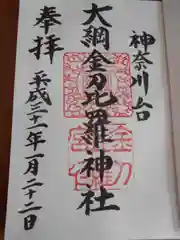 神奈川台
大綱金刀比羅神社
奉拝
平成三十一年一月二十二日